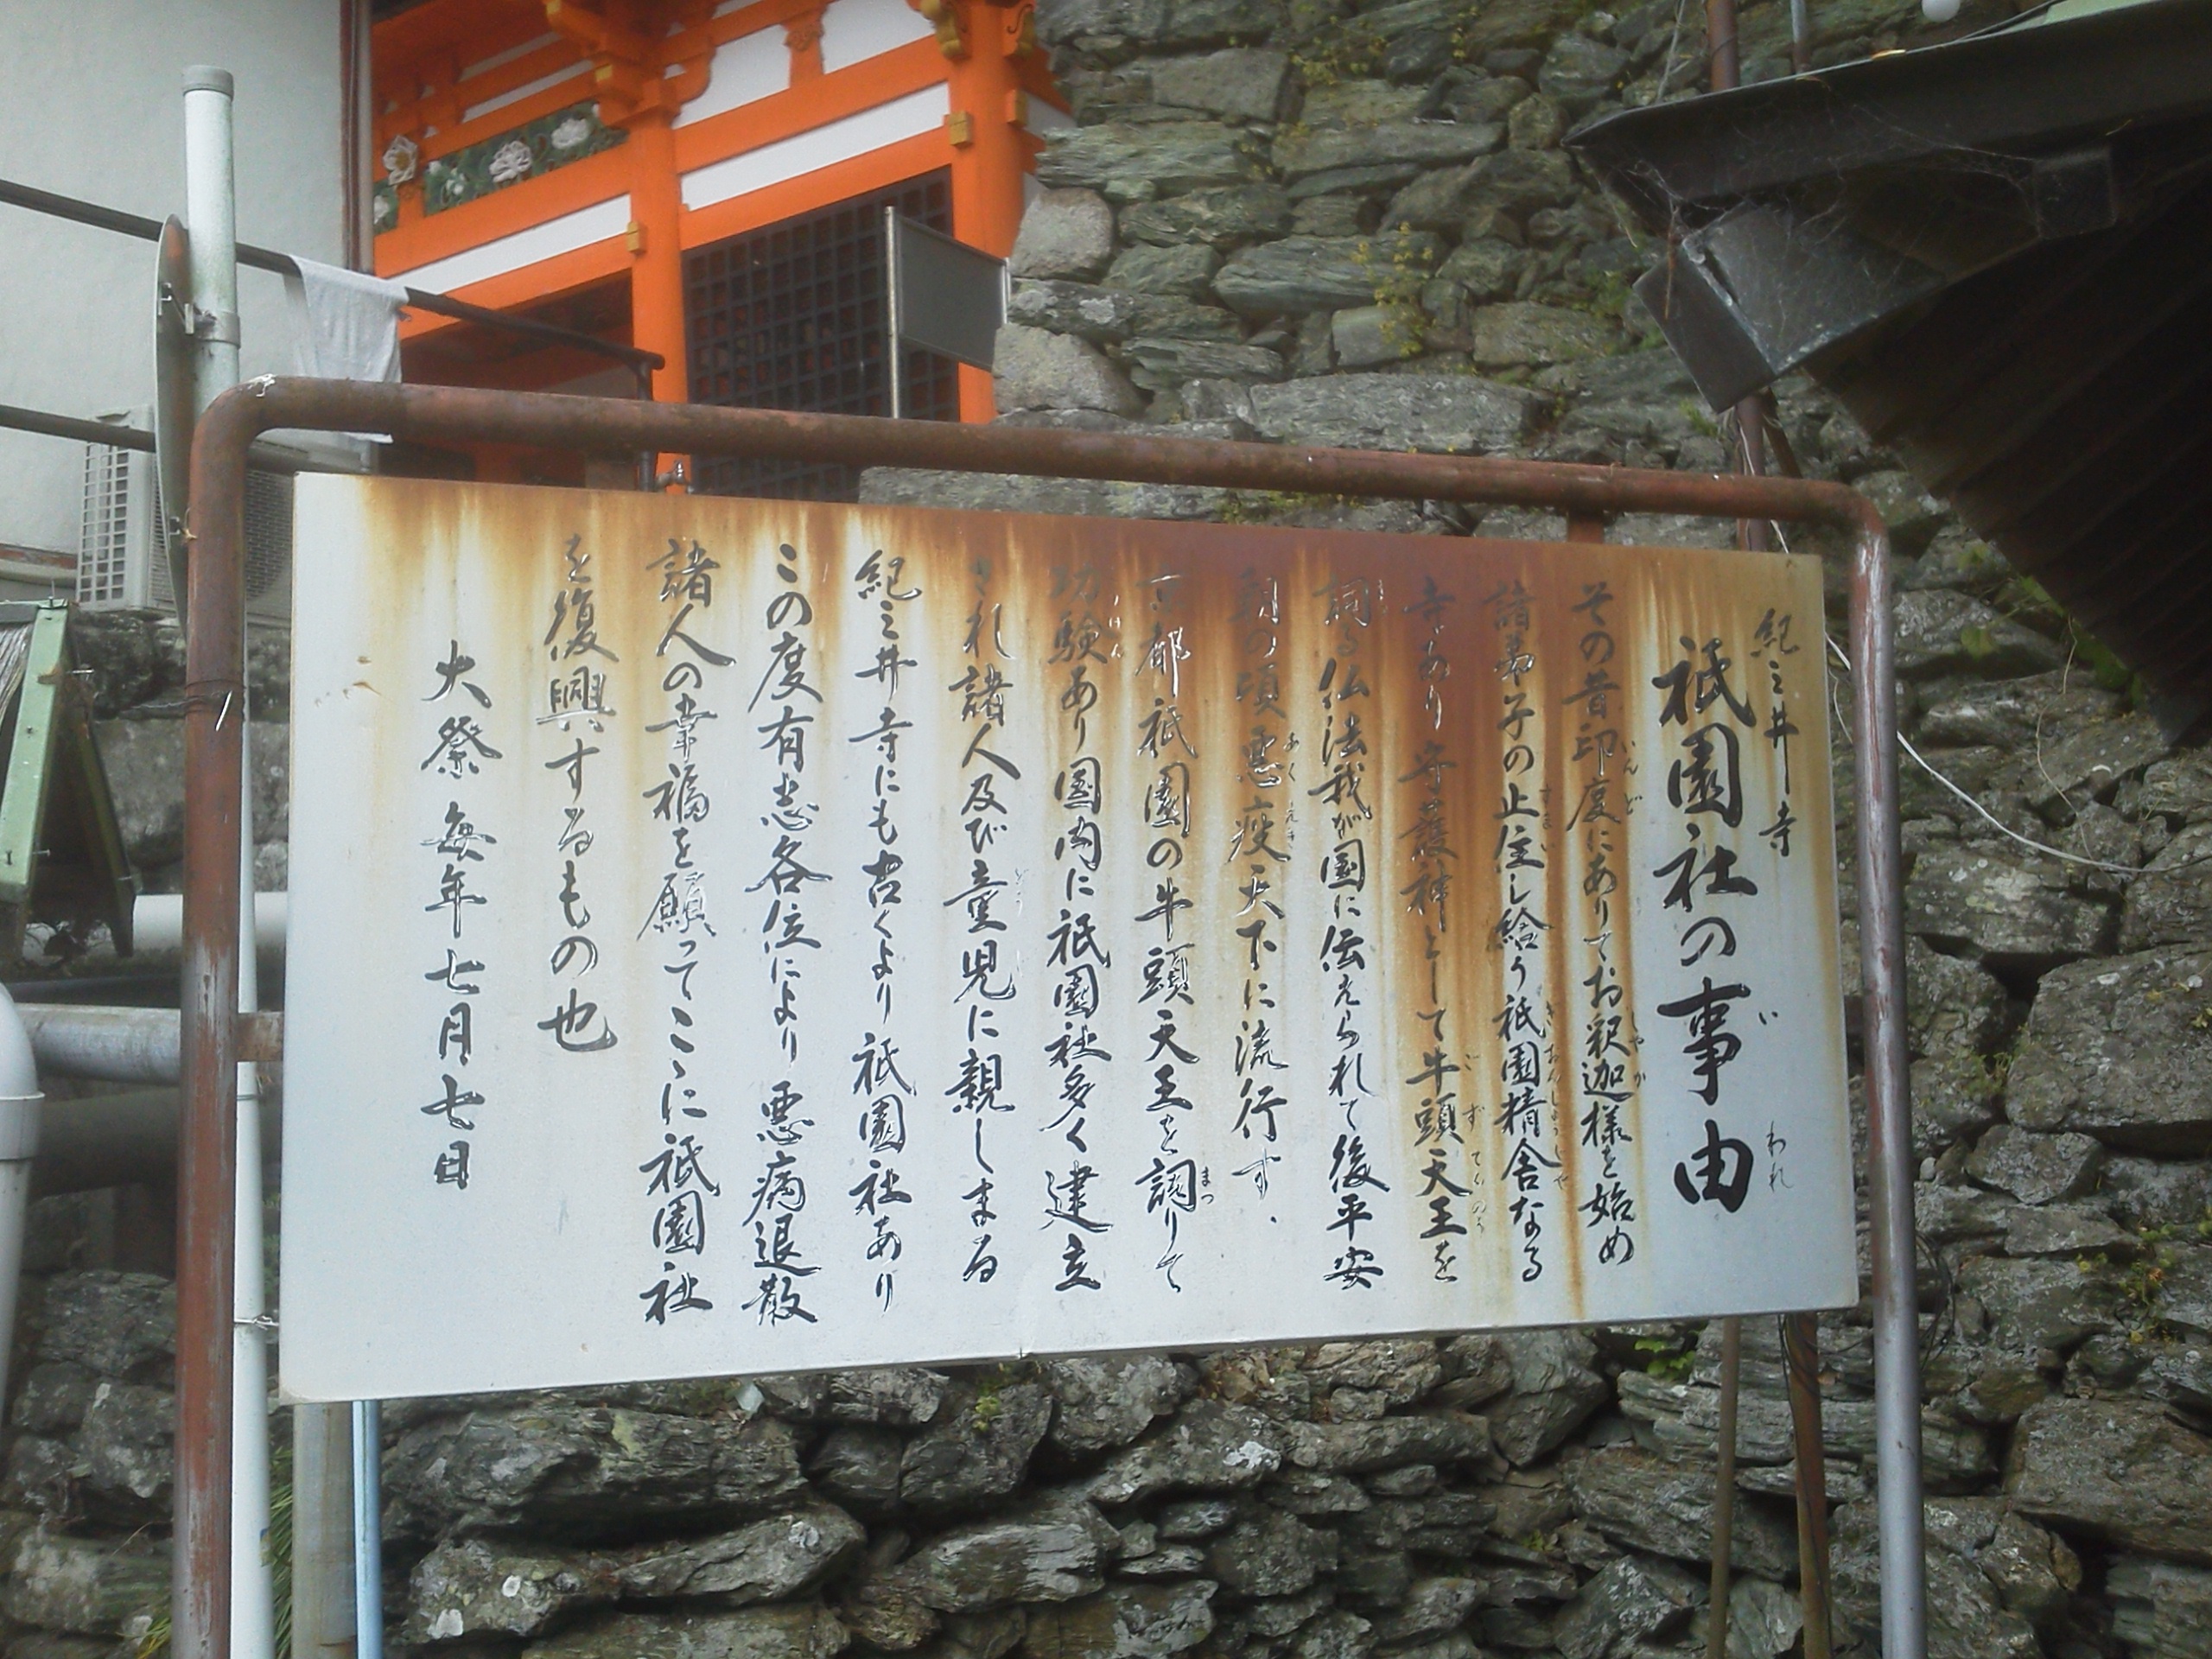 紀三井寺
祇園社の事由
いわれ
その昔印度にありてお釈迦様を始め
いんど しゃか
諸弟子の止住し給う祇園精舎なる
ぎおんしょうしゃ
寺あり守護神として牛頭天王を
ごずてんのう
祠る仏法我が国に伝えられて後平安
朝の頃悪疫天下に流行す、
あくえき
京都祇園の牛頭天王を詞りて
まつ
功験あり国内に祇園社多く建立
され諸人及び童児に親しまる
どう
紀三井寺にも古くより祇園社あり
この度有志各位により悪病退散
諸人の幸福を願ってここに祇園社
を復興するもの也
大祭毎年七月七日